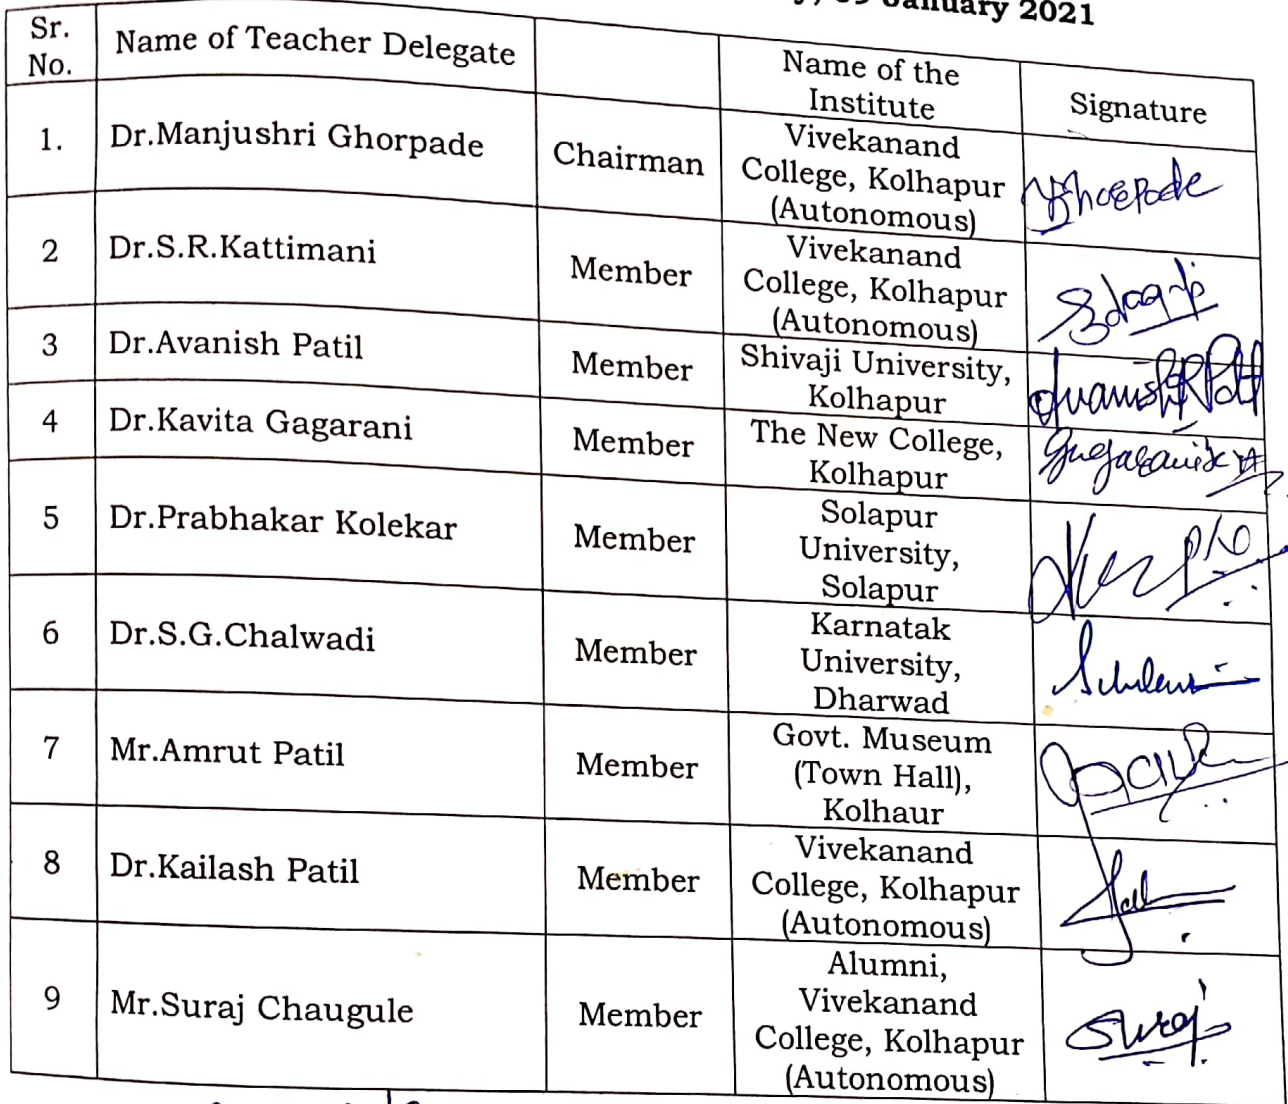 January 2021
Sr.
No.
Name of Teacher Delegate
Name of the
Institute
Signature
1.
Dr.Manjushri Ghorpade
Chairman
Vivekanand
College, Kolhapur
(Autonomous)
Ghorpade
2
Dr.S.R.Kattimani
Member
Vivekanand
College, Kolhapur
(Autonomous)
3
Dr.Avanish Patil
Member
Shivaji University,
Kolhapur
Avanish R Patil
4
Dr.Kavita Gagarani
Member
The New College,
Kolhapur
5
Dr.Prabhakar Kolekar
Member
Solapur
University,
Solapur
6
Dr.S.G.Chalwadi
Member
Karnatak
University,
Dharwad
7
Mr.Amrut Patil
Member
Govt. Museum
(Town Hall),
Kolhaur
8
Dr.Kailash Patil
Member
Vivekanand
College, Kolhapur
(Autonomous)
9
Mr.Suraj Chaugule
Member
Alumni,
Vivekanand
College, Kolhapur
(Autonomous)
Suraj